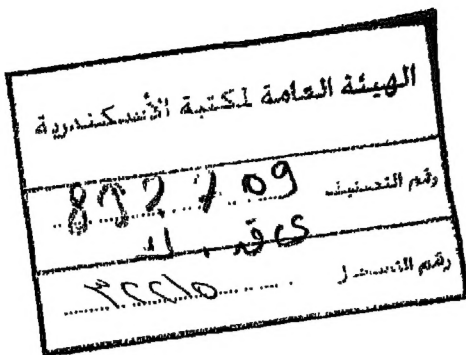 الهيئة العامة لمكتبة الأسكندرية
رقم التصنيف 892.709
رقم التسجيل ٣٢٢١٥